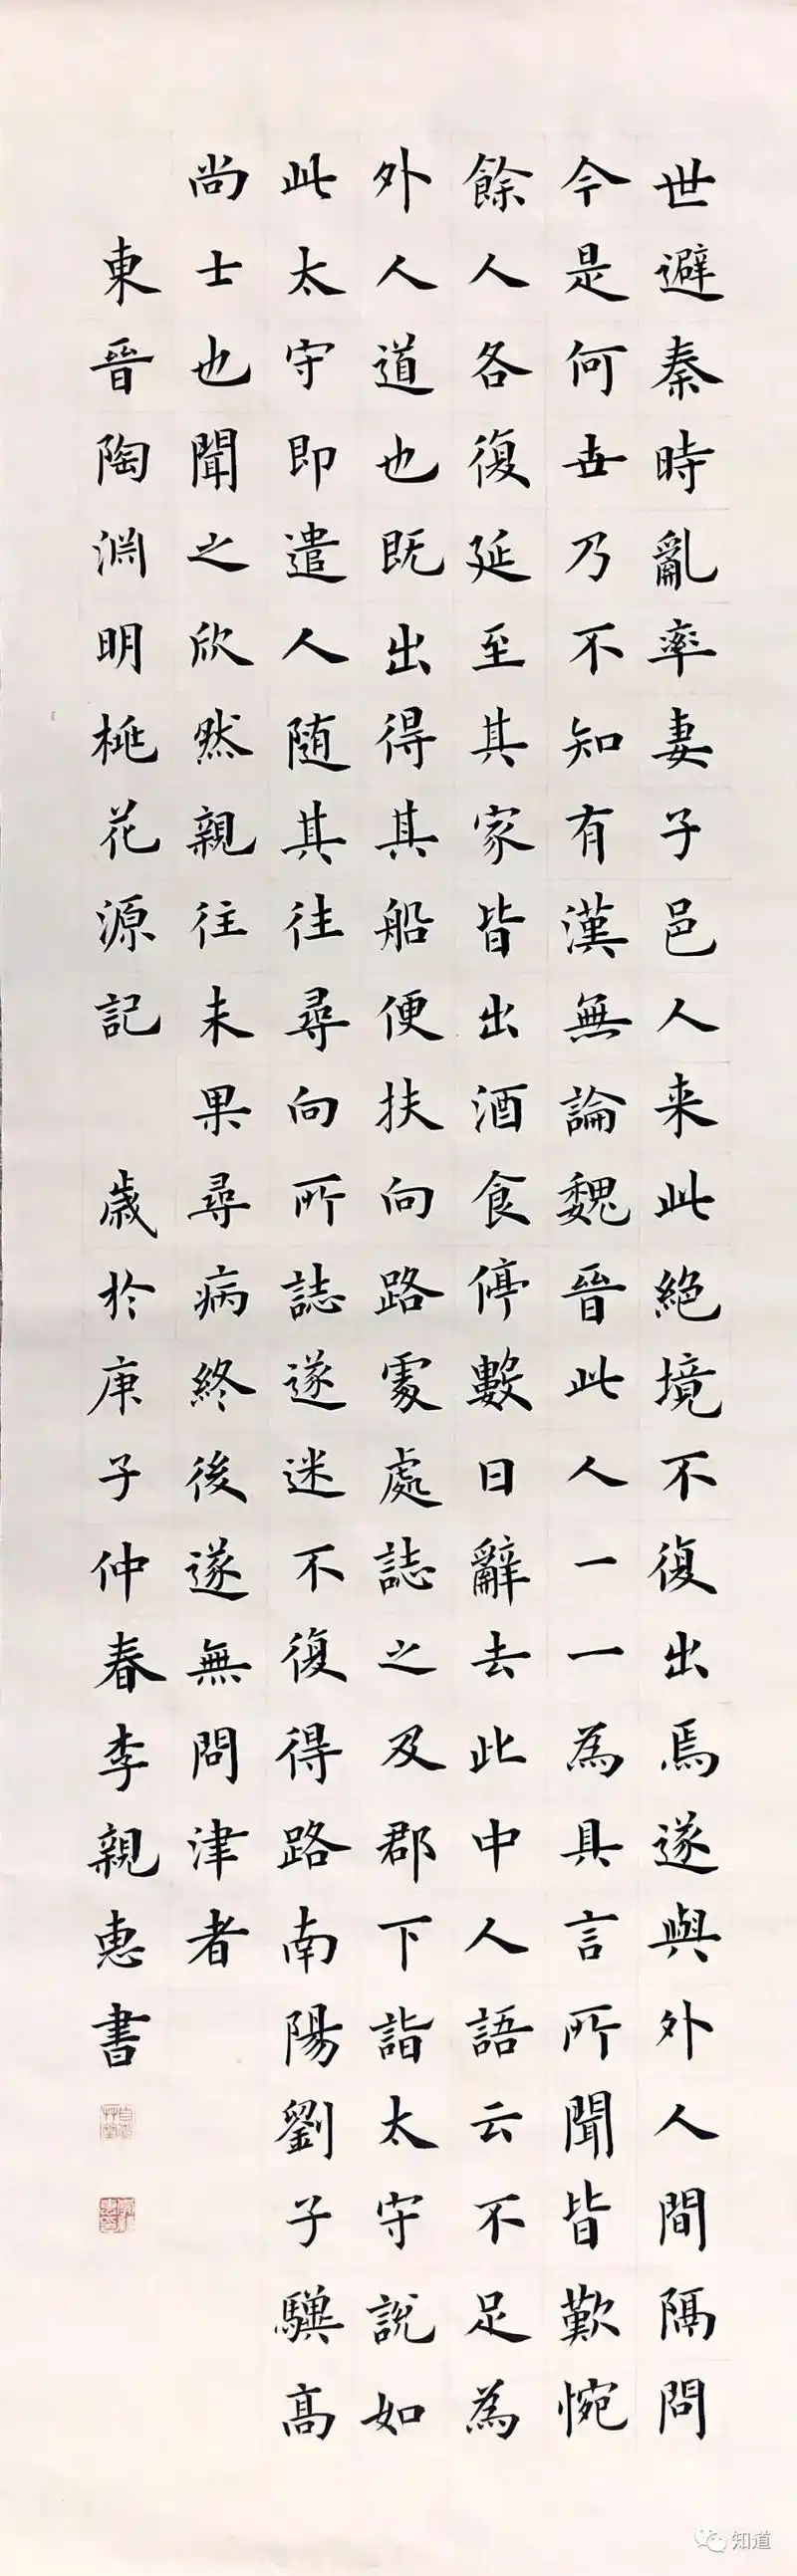 世避秦時亂率妻子邑人来此絶境不復出焉遂與外人間隔問
今是何世乃不知有漢無論魏晉此人一一為具言所聞皆歎惋
餘人各復延至其家皆出酒食停數日辭去此中人語云不足為
外人道也既出得其船便扶向路處處誌之及郡下詣太守説如
此太守即遣人随其往尋向所誌遂迷不復得路南陽劉子驥高
尚士也聞之欣然親往未果尋病終後遂無問津者
東晉陶淵明桃花源記 歲於庚子仲春李親惠書
知道